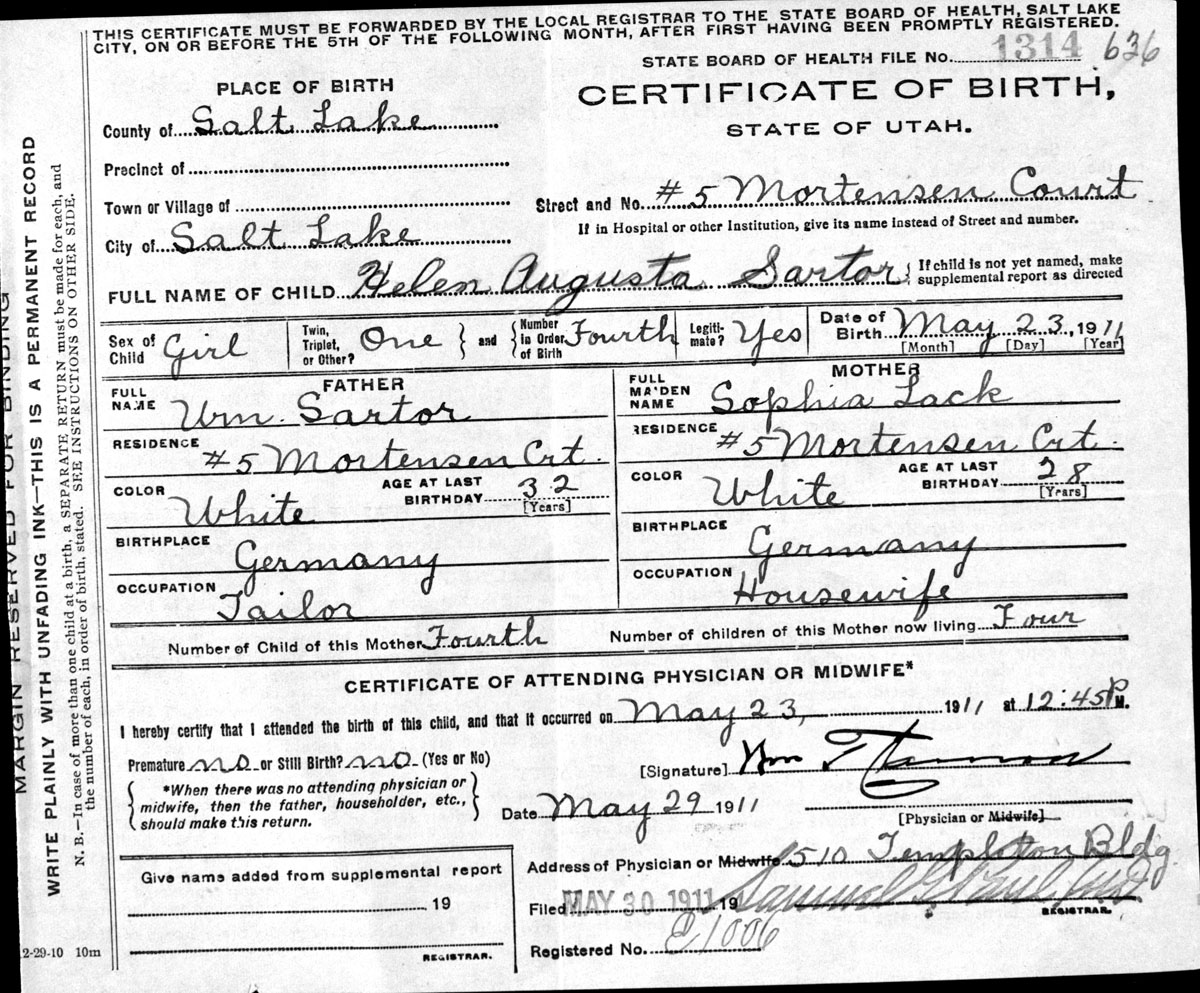 THIS CERTIFICATE MUST BE FORWARDED BY THE LOCAL REGISTRAR TO THE STATE BOARD OF HEALTH, SALT LAKE
CITY, ON OR BEFORE THE 5TH OF THE FOLLOWING MONTH, AFTER FIRST HAVING BEEN PROMPTLY REGISTERED.
STATE BOARD OF HEALTH FILE No. 1314 636
PLACE OF BIRTH
CERTIFICATE OF BIRTH,
STATE OF UTAH.
County of Salt Lake
Precinct of
Town or Village of
Street and No. #5 Mortensen Court
If in Hospital or other Institution, give its name instead of Street and number.
City of Salt Lake
FULL NAME OF CHILD Helen Augusta Sartor { If child is not yet named, make
supplemental report as directed
Sex of Child Girl Twin, Triplet, or Other? One } and { Number in Order of Birth Fourth Legiti-mate? Yes Date of Birth May 23, 1911
[Month] [Day] [Year]
FATHER
MOTHER
FULL NAME Wm. Sartor
FULL MAIDEN NAME Sophia Lack
RESIDENCE #5 Mortensen Crt.
RESIDENCE #5 Mortensen Crt.
COLOR White AGE AT LAST BIRTHDAY 32 [Years]
COLOR White AGE AT LAST BIRTHDAY 28 [Years]
BIRTHPLACE Germany
BIRTHPLACE Germany
OCCUPATION Tailor
OCCUPATION Housewife
Number of Child of this Mother Fourth Number of children of this Mother now living Four
CERTIFICATE OF ATTENDING PHYSICIAN OR MIDWIFE*
I hereby certify that I attended the birth of this child, and that it occurred on May 23, 1911 at 12:45 P M.
Premature no or Still Birth? no. (Yes or No)
[Signature] Wm
*When there was no attending physician or
midwife, then the father, householder, etc.,
should make this return.
Date May 29 1911
[Physician or Midwife]
Address of Physician or Midwife 510 Templeton Bldg.
Give name added from supplemental report
19
REGISTRAR.
Filed MAY 30 1911 19 Samuel
REGISTRAR.
Registered No. E1006
2-29-10 10m
MARGIN RESERVED FOR BINDING
WRITE PLAINLY WITH UNFADING INK—THIS IS A PERMANENT RECORD
N. B.—In case of more than one child at a birth, a SEPARATE RETURN must be made for each, and
the number of each, in order of birth, stated. SEE INSTRUCTIONS ON OTHER SIDE.